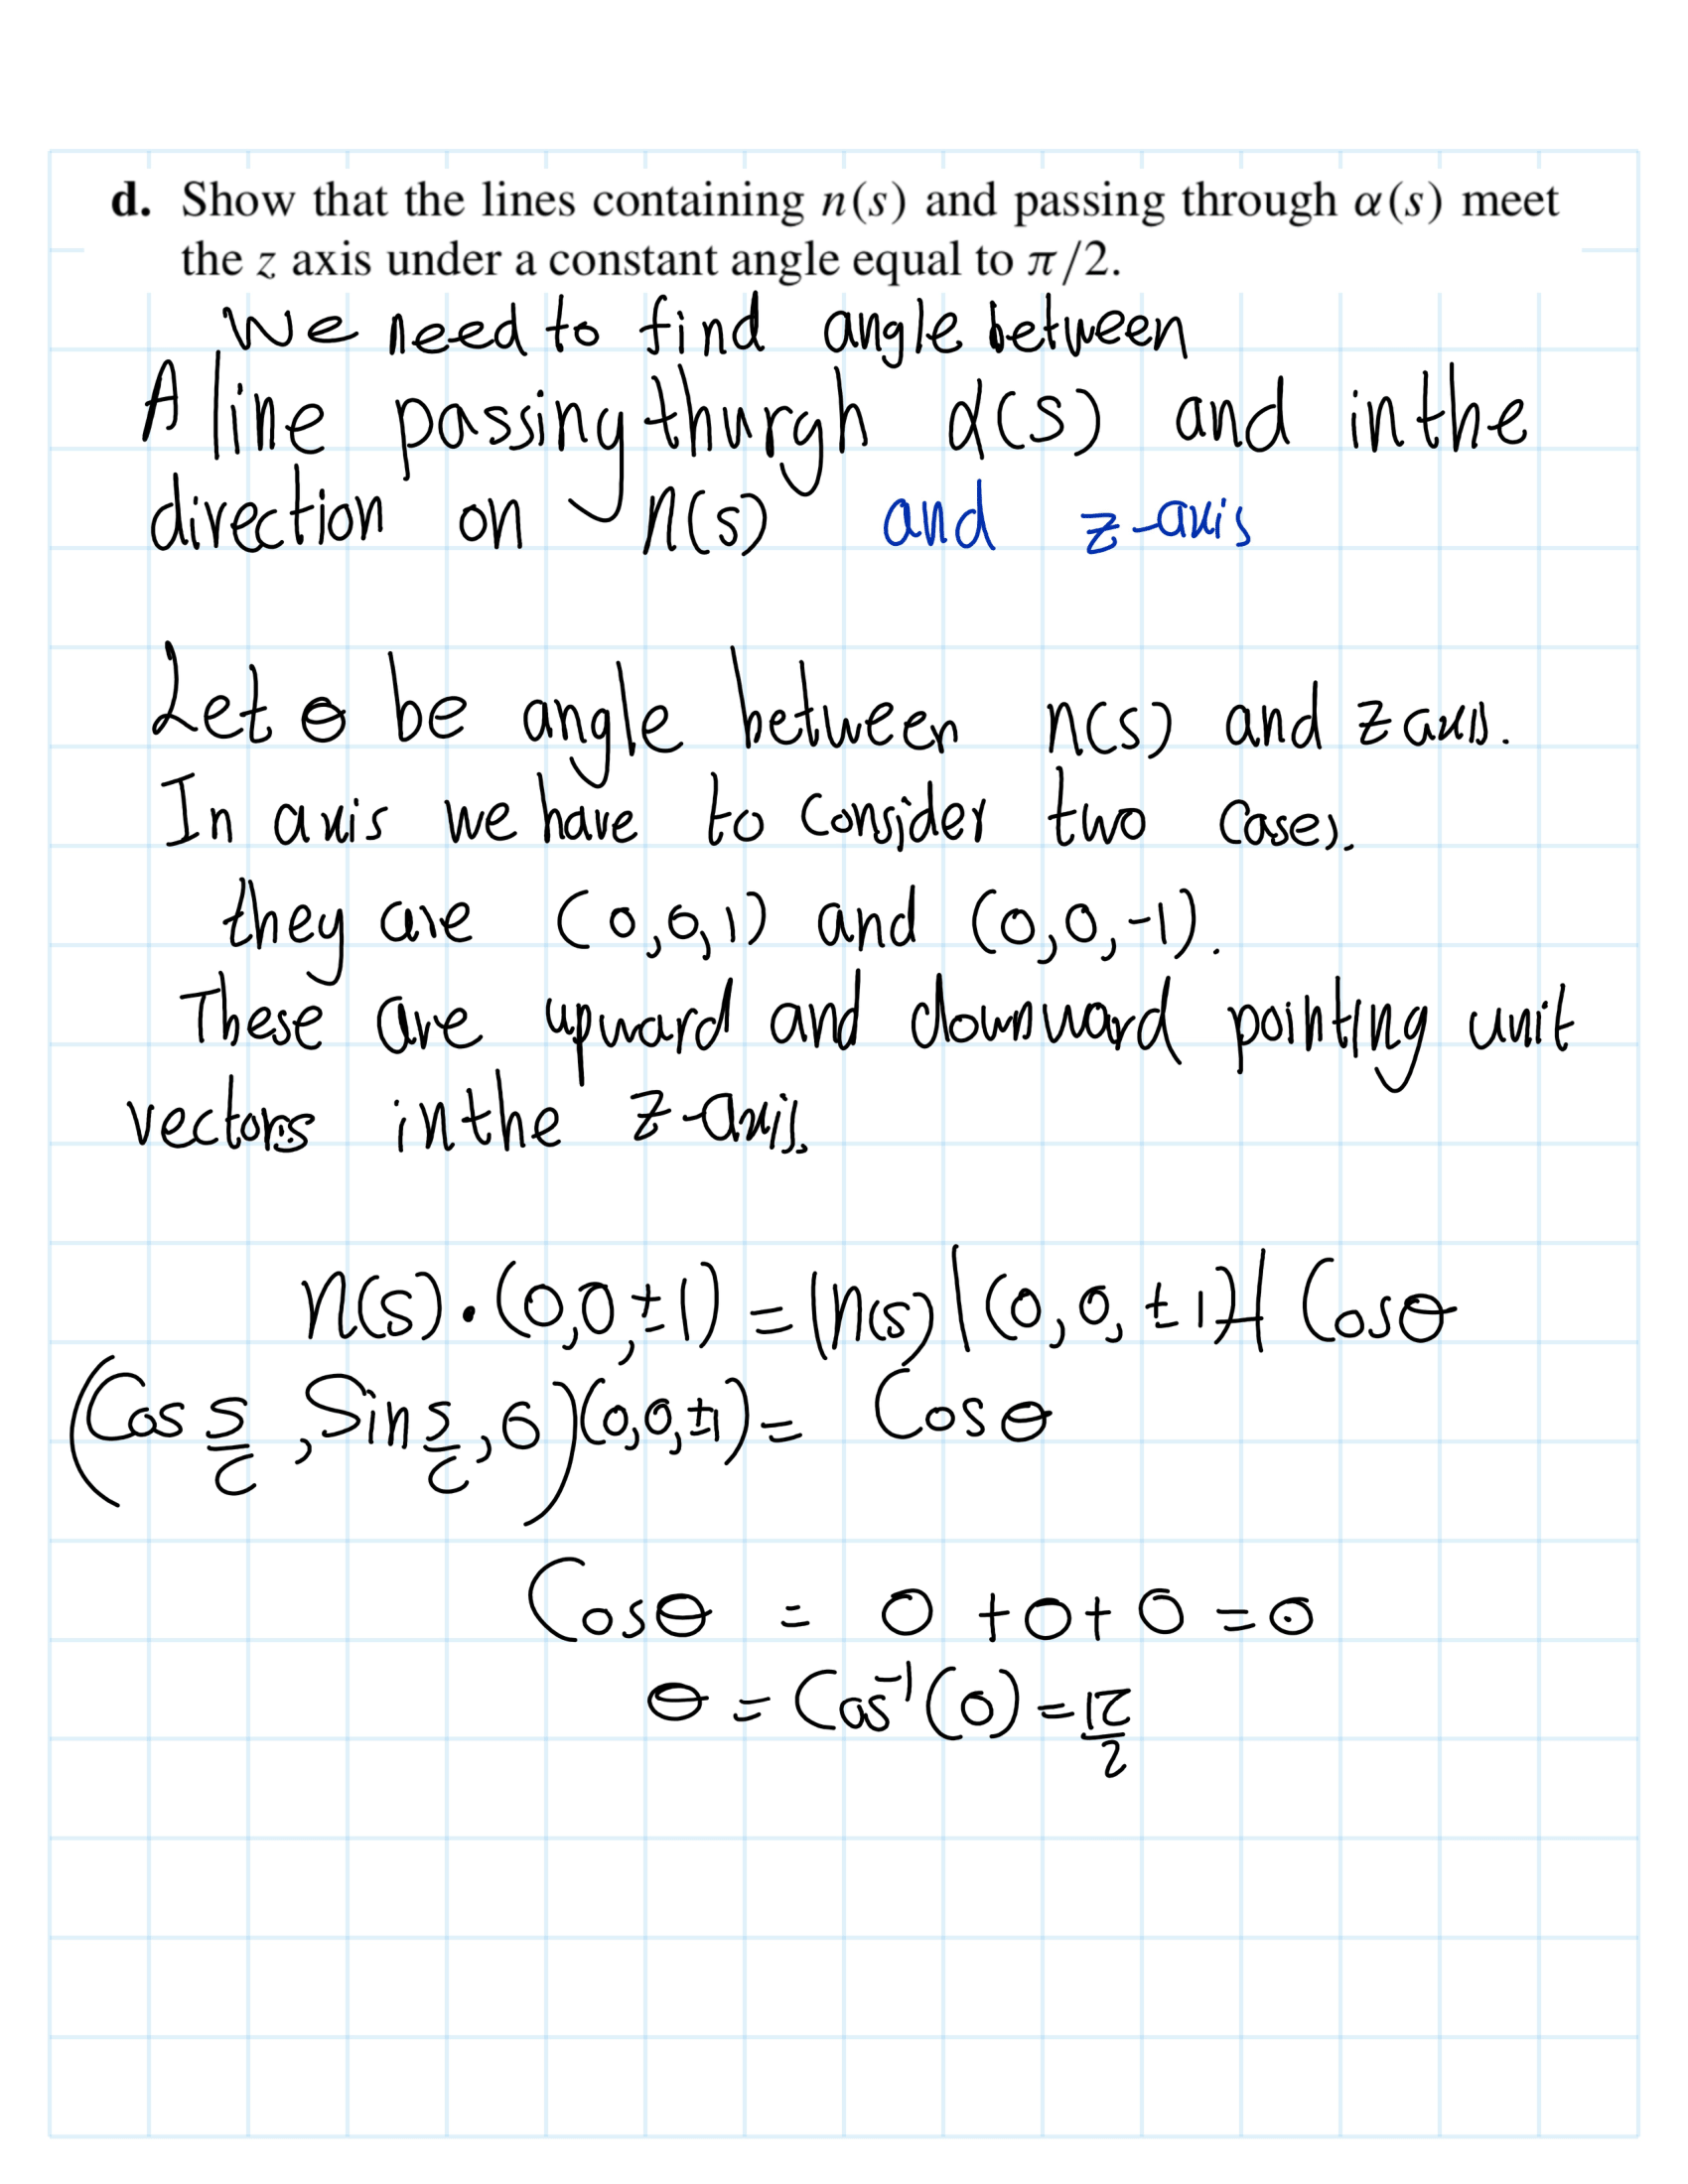 d. Show that the lines containing n(s) and passing through α(s) meet
the z axis under a constant angle equal to π/2.
We need to find angle between
A line passing thurgh α(s) and in the
direction on n(s) and z-axis
Let θ be angle between n(s) and z axis.
In axis we have to consider two cases.
they are (0,0,1) and (0,0,-1).
These are upward and downward pointing unit
vectors in the z-axis.
n(s)·(0,0,±1) = |n(s)|(0,0,±1)| Cosθ
(Cos s/c, Sin s/c, 0)(0,0,±1) = Cosθ
Cosθ = 0 + 0 + 0 = 0
θ = Cos⁻¹(0) = π/2